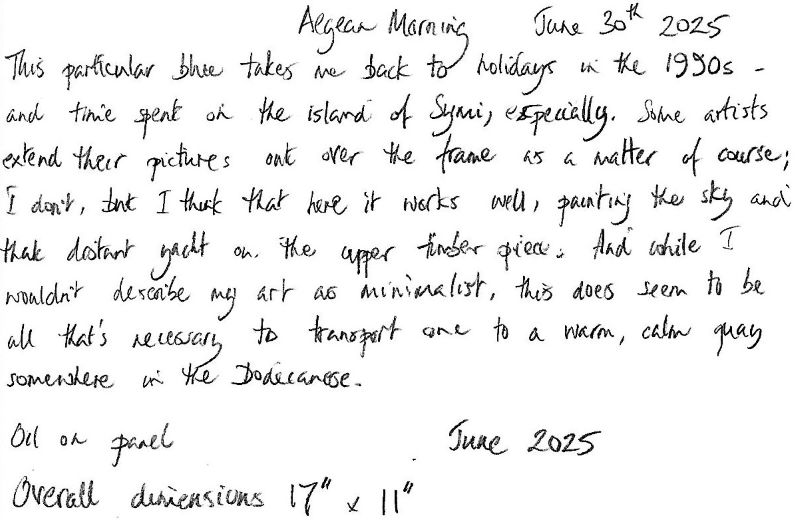 Aegean Morning June 30th 2025
This particular blue takes me back to holidays in the 1990s -
and time spent on the island of Symi, especially. Some artists
extend their pictures out over the frame as a matter of course;
I don't, but I think that here it works well, painting the sky and
that distant yacht on the upper timber piece. And while I
wouldn't describe my art as minimalist, this does seem to be
all that's necessary to transport one to a warm, calm quay
somewhere in the Dodecanese.
Oil on panel June 2025
Overall dimensions 17" x 11"